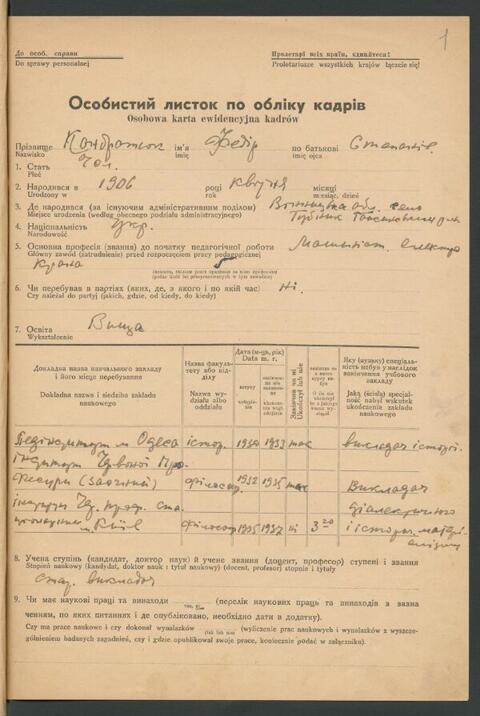 1
До особ. справи
Do sprawy personalnej
Пролетарі всіх країн, єднайтеся!
Proletariusze wszystkich krajów łączcie się!
Особистий листок по обліку кадрів
Osobowa karta ewidencyjna kadrów
Прізвище Кондратюк ім'я Федір по батькові
Nazwisko imię imię ojca
1. Стать чол.
Płeć
2. Народився в 1906 році квітня місяці
Urodzony w rok miesiąc, dzień
3. Де народився (за існуючим адміністративним поділом) Вінницька обл. село
Miejsce urodzenia (według obecnego podziału administracyjnego)
4. Національність Укр.
Narodowość
5. Основна професія (звання) до початку педагогічної роботи Машиніст електро
Główny zawód (zatrudnienie) przed rozpoczęciem pracy pedagogicznej
Крана
6. Чи перебував в партіях (яких, де, з якого і по який час) Ні.
Czy należał do partyj (jakich, gdzie, od kiedy, do kiedy)
7. Освіта Вища
Wykształcenie
Докладна назва навчального закладу і його місце перебування
Dokładna nazwa i siedziba zakładu naukowego
Назва факультету або відділу
Nazwa wydziału albo oddziału
Дата (м-ця, рік)
Data m. r.
Закінчив чи ні
Ukończył lub nie
Яку (вузьку) спеціальність набув в наслідок закінчення учбового закладу
Jaką (ścisłą) specjalność nabył wskutek ukończenia zakładu naukowego
Педінститут м Одеса істор. 1930 1933 так викладач історії.
інститут Червоної Про
фесури (заочний) філософ. 1932 1935 так Викладач
діалектичного
м. Київ філософ 1935 1937 ні 3
8. Учена ступінь (кандидат, доктор наук) й учене звання (доцент, професор) ступені і звання
Stopień naukowy (kandydat, doktor nauk i tytuł naukowy) (docent, profesor) stopnie i tytuły
стар. викладач
9. Чи має наукові праці та винаходи (перелік наукових праць та винаходів з зазна
ченням, по яких питаннях і де опубліковано, необхідно дати в додатку).
Czy ma prace naukowe i czy dokonał wynalazków (tak lub nie) (wyliczenie prac naukowych i wynalazków z wyszcze-
gólnieniem badanych zagadnień, czy i gdzie opublikował swoje prace, koniecznie podać w załączniku).